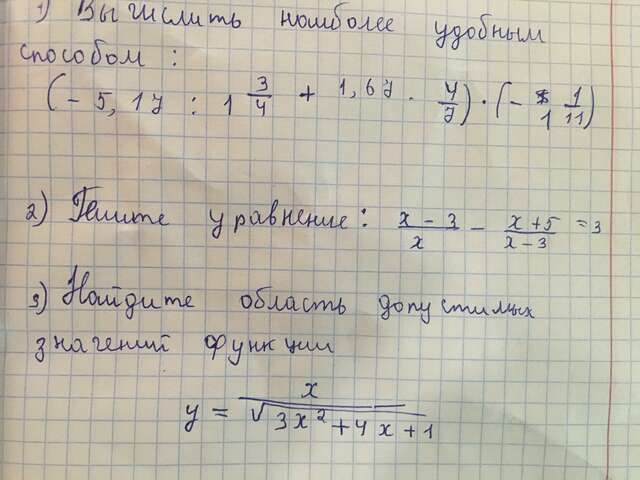 1) Вычислить наиболее удобным
способом :
(- 5,17 : 1 3/4 + 1,67 · 4/7) · (- 1 1/11)
2) Решите уравнение: (x - 3)/x - (x + 5)/(x - 3) = 3
3) Найдите область допустимых
значений функции
y = x/√(3x² + 4x + 1)